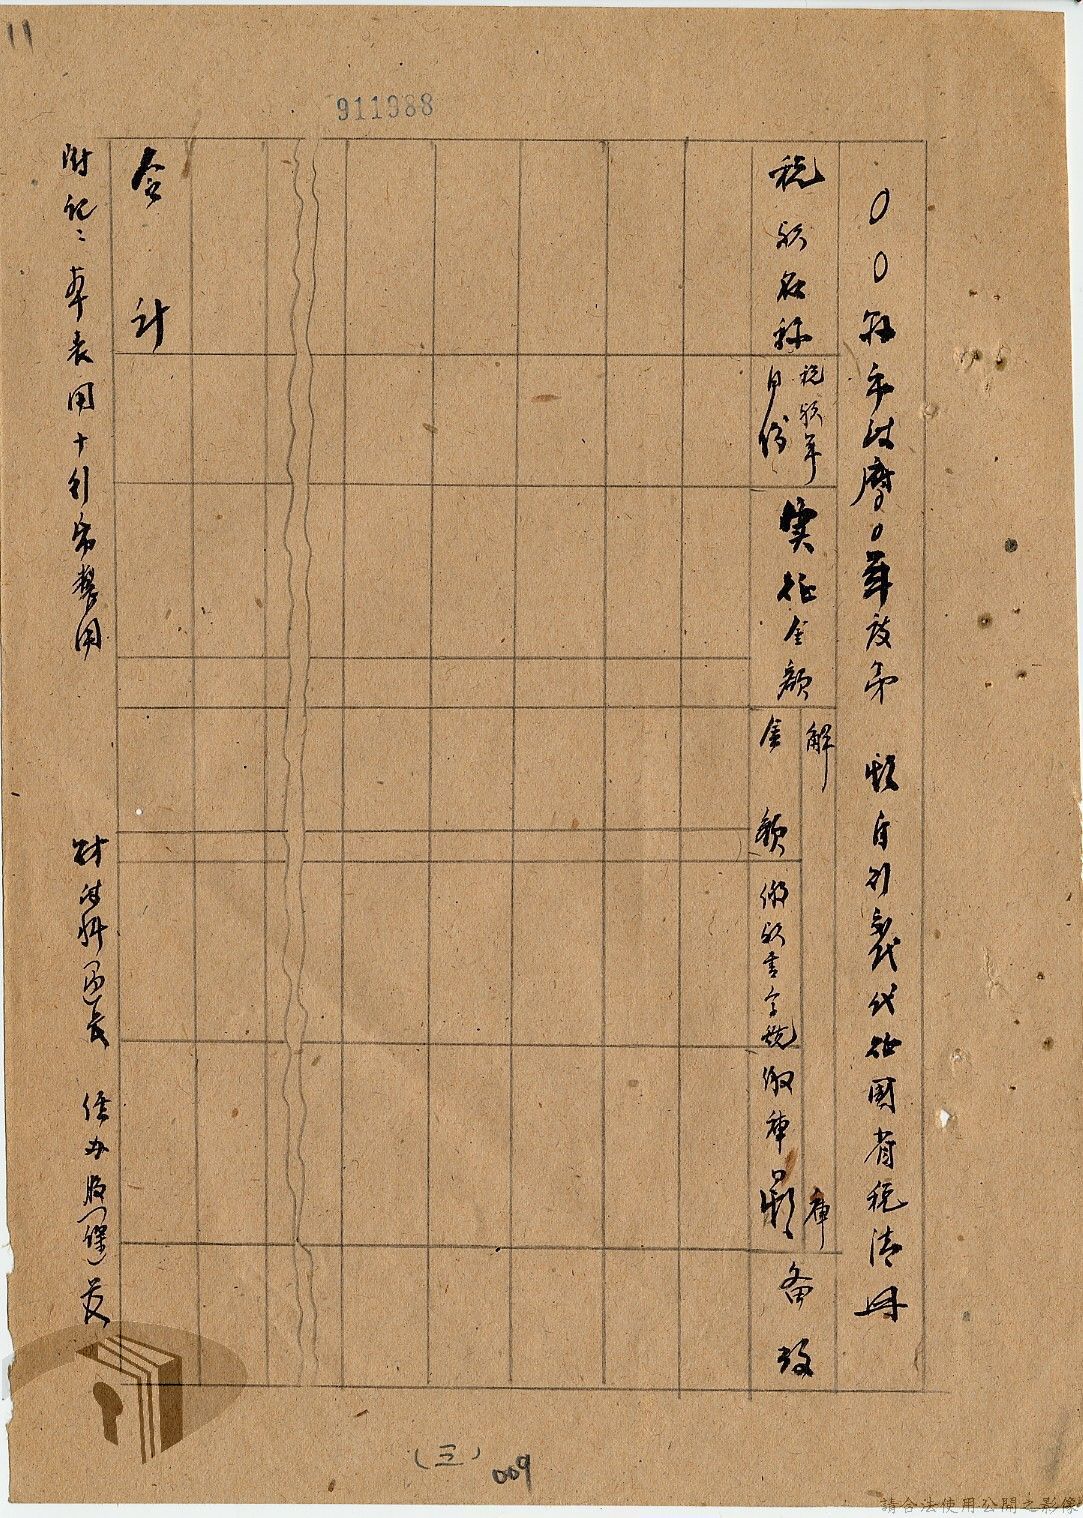 11
911988
〇〇縣市政府〇年度第　期自行裁代征國省稅清冊
稅款名称
稅款年
月份
実征金額
解　庫
金額
繳款書字號
繳庫日期
备考
合計
附記：本表用十行紙製用
財政科（局）長　經办股（課）長
（三）
009
請合法使用公開之影像